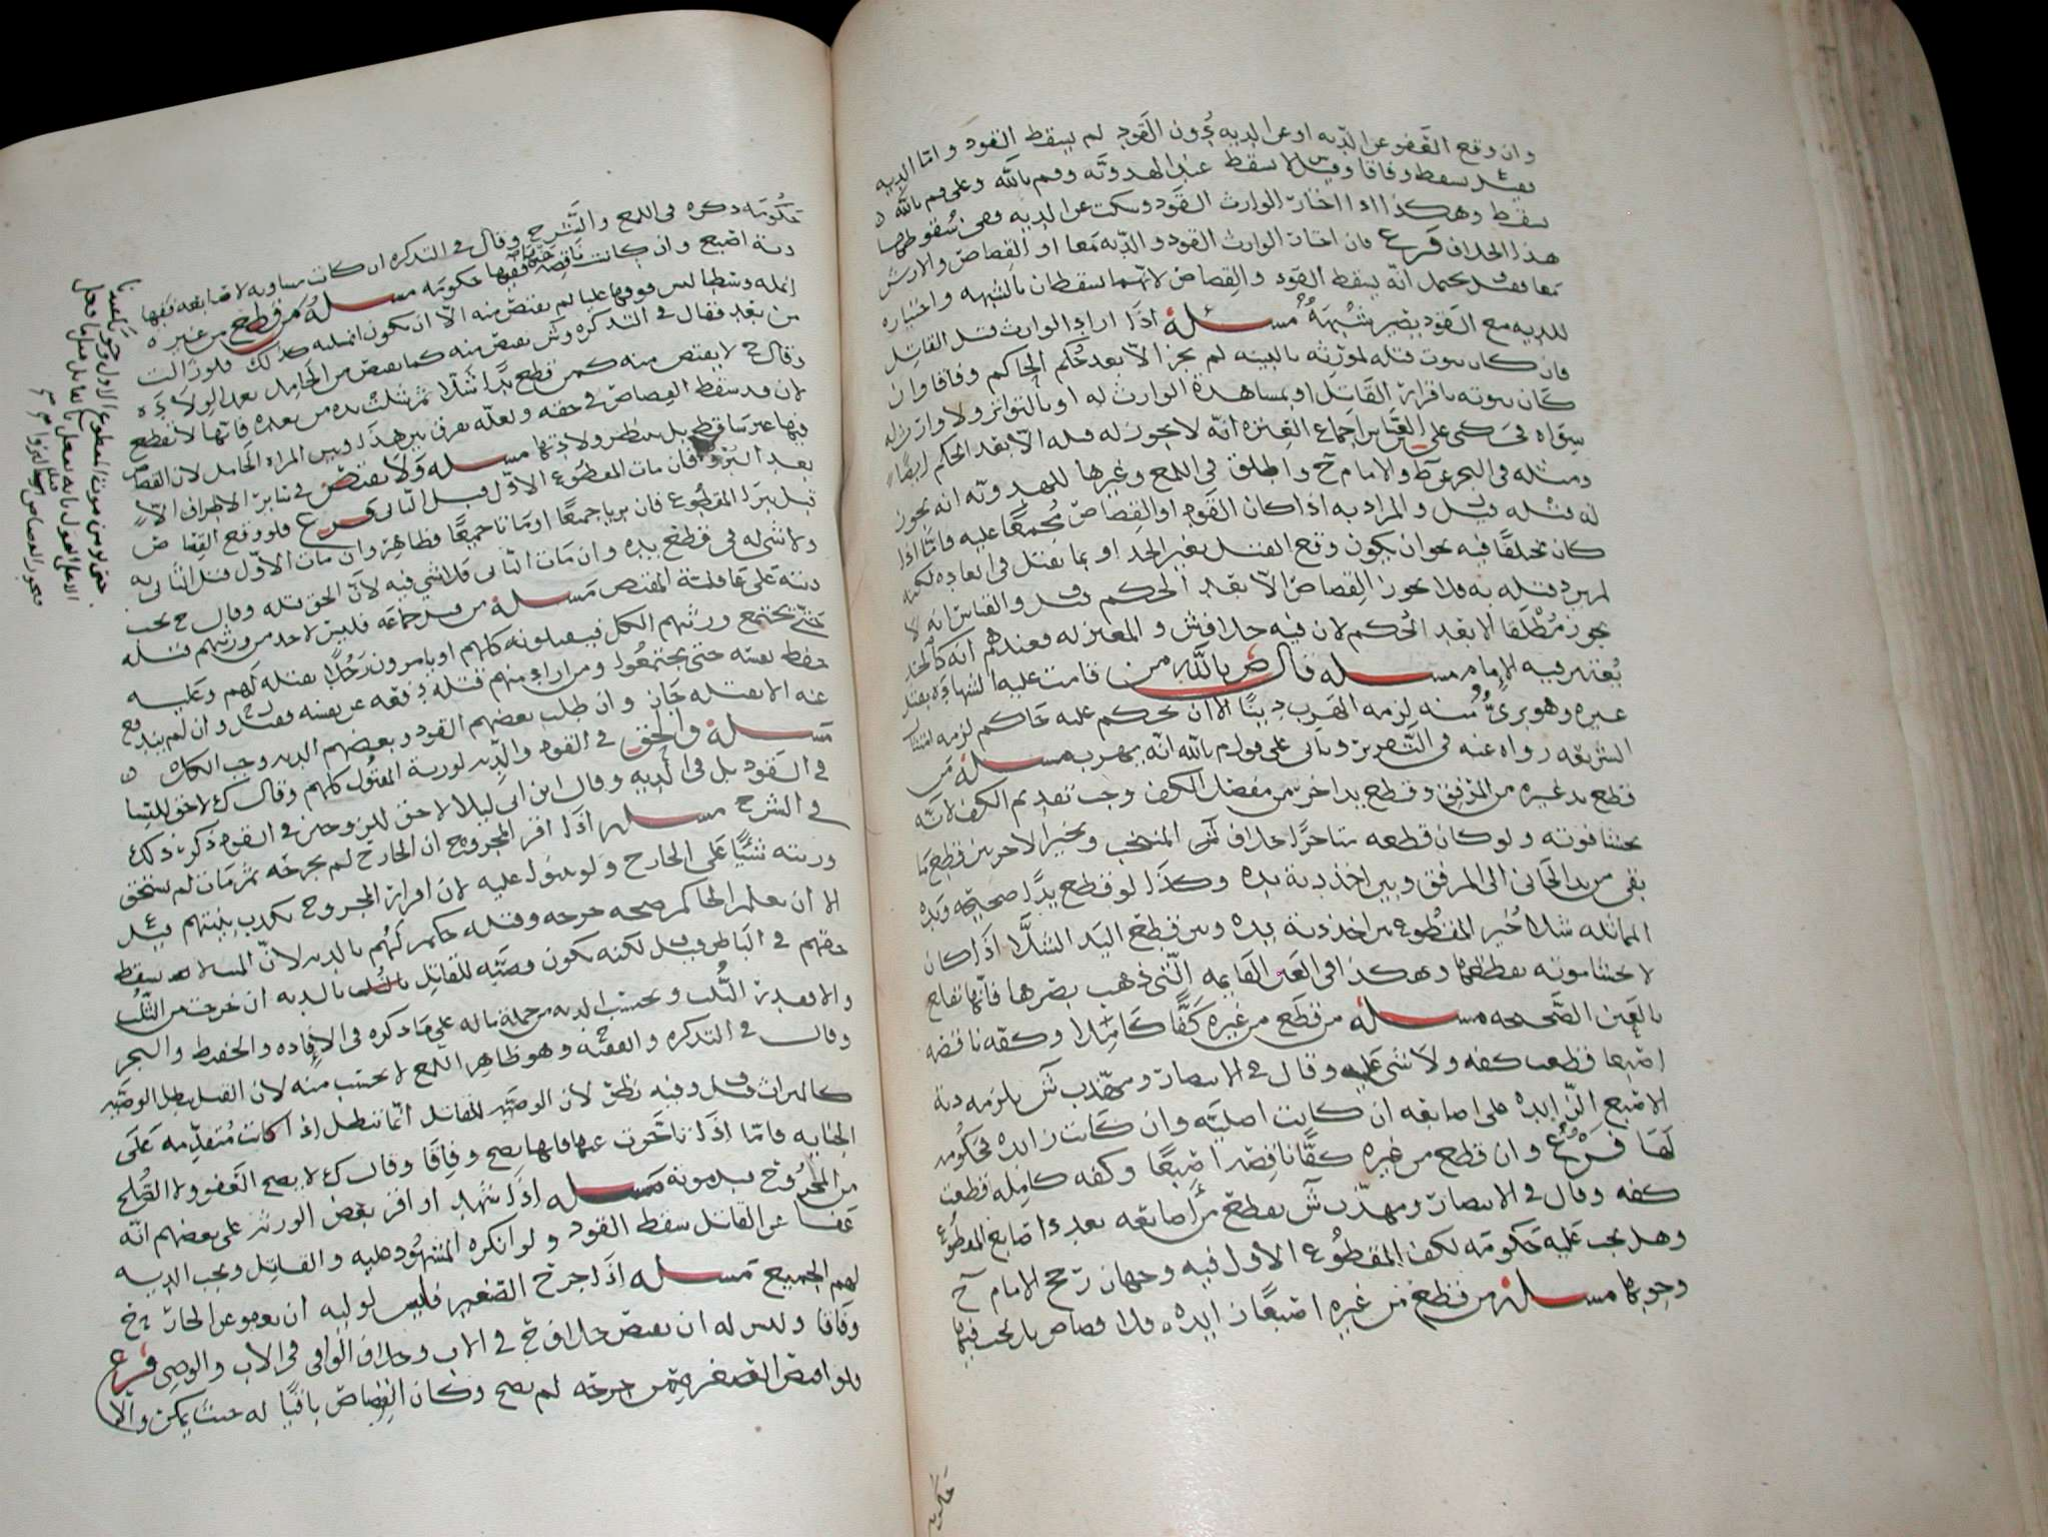 وان وقع العفو عن الديه او عن الديه دون القود لم يسقط القود واما الديه
فقيل يسقط وفاقا وقيل لا يسقط عند المهدويه وم بالله وعلى قول م بالله
يسقط وهكذا اذا اختار الوارث القود وسكت عن الديه ففي سقوطها
هذا الخلاف فرع فان اختار الوارث القود والديه معا او القصاص والارش
معا فقيل يحتمل انه يسقط القود والقصاص لانهما يسقطان بالشبهه واختياره
للديه مع القود يصير شبهة مسئلة اذا اراد الوارث قتل القاتل
فان كان ثبوت قتله لمورثه بالبينه لم يجز الا بعد حكم الحاكم وفاقا وان
كان ثبوته باقرار القاتل او بمشاهدة الوارث له او بالتواتر ولا وارث له
سواه اجماع العتره انه لا يجوز له قتله الا بعد الحكم ايضا
ومثله في البحر عن ط والامام ح واطلق في اللمع وغيرها للمهدويه انه يجوز
له قتله قيل والمراد به اذا كان القود او القصاص مجمعا عليه فاما اذا
كان مختلفا فيه نحو ان يكون وقع القتل بغير الحد او بما يقتل في العاده لكنه
لم يرد قتله به فلا يجوز القصاص الا بعد الحكم قيل والقياس انه لا
يجوز مطلقا الا بعد الحكم لان فيه خلاف ش والمعتزله فعندهم انه كالحد
يعتبر فيه الامام مسئله قال ص بالله من قامت عليه الشهادة بقتل
غيره وهو بريء منه لزمه الهرب دينا الا ان يحكم عليه حاكم لزمه امتثال
الشريعه رواه عنه في التقرير وياتي على قول م بالله انه يهرب مسئلة من
قطع يد غيره من المرفق وقطع يد اخر من مفصل الكف وجب تقديم الكف لانه
يخشا فوته ولو كان قطعه متاخرا خلاف المنتخب ويخير الاخر بين قطع ما
بقى من يد الجاني الى المرفق وبين اخذ دية يده وكذا لو قطع يدا صحيحه ويده
المماثله شلا خير المقطوع بين اخذ دية يده وبين قطع اليد الشلا اذا كان
لا يخشا موته بقطعها وهكذا في العين القايمه التي ذهب بصرها فانها تقلع
بالعين الصحيحه مسئله من قطع من غيره كفا كاملا وكفه ناقصه
اصبعا قطعت كفه ولا شي عليه وقال في الانتصار ومهذب ش يلزمه دية
الاصبع الزايده على اصابعه ان كانت اصلية وان كانت زايده فحكومه
لها فرع وان قطع من غيره كفا ناقصه اصبعا وكفه كامله قطعت
كفه وقال في الانتصار ومهذب ش يقطع من اصابعه بعدد اصابع المقطوع
وهل يجب عليه حكومه لكف المقطوع الاول فيه وجهان رجح الامام ح
وجوبها مسئله من قطع من غيره اصبعا زايده فلا قصاص بل يجب فيها
حكومه
حكومة ذكره في اللمع والشرح وقال في التذكره ان كانت مساويه لاصابعه ففيها
دية اصبع وان كانت ناقصه عنها ففيها حكومه مسئله من قطع من غيره
انمله وسطا ليس فوقها عليا لم يقتص منه الا ان يكون انمله كذلك فلو زالت
من بعد فقال في التذكره وش يقتص منه كما يقتص من الحامل بعد الولادة
وقال ح لا يقتص منه كمن قطع يدا شلا ثم شلت يده من بعد فانها لا تقطع
لان قد سقط القصاص في حقه ولعله يفرق بين هذا وبين المراه الحامل لان القصاص
فيها غير ساقط بل ينظر ولادتها مسئله ولا يقتص في سائر الاطراف الا
بعد البرؤ فان مات المقطوع الاول قبل الثاني فرع فلو وقع القصاص
قبل برء المقطوع فان بريا جميعا او ماتا جميعا فظاهر وان مات الاول قتل الثاني به
ولا شي له في قطع يده وان مات الثاني فلا شي فيه لان الحق قتله وقال ح يجب
ديته على عاقلة المقتص مسئلة من قتل جماعه فليس لاحد من ورثتهم قتله
حتى يجتمع ورثتهم الكل فيقتلونه كلهم او يامرون رجلا يقتله لهم وعليه
حفظ نفسه حتى يجتمعوا ومن اراد منهم قتله دفعه عن نفسه وان لم يندفع
عنه الا بقتله جاز وان طلب بعضهم القود وبعضهم الديه وجب الكل
مسئلة والحق في القود والديه لورثة المقتول كلهم وقال ك لا حق للنسا
في القود بل في الديه وقال ابن ابي ليلا لا حق للزوجين في القود ذكر ذلك
في الشرح مسئله اذا اقر المجروح ان الجارح لم يجرحه ثم مات لم يستحق
ورثته شيئا على الجارح ولو بينوا عليه لان اقرار المجروح يكذب بينتهم قيل
الا ان يعلم الحاكم صحه جرحه وقتله حكم لهم بالديه لان
حقهم في الباطن وقيل لكنه يكون وصيه للقاتل بالديه ان خرجت من الثلث
والا فبقدر الثلث ويحتسب الديه من جملة ماله على ما ذكره في الافاده والحفيظ والبحر
وقال في التذكره والفقيه وهو ظاهر اللمع لا يحتسب منه لان القتل يبطل الوصيه
كالميراث قيل وفيه نظر لان الوصيه للقاتل انما تبطل اذا كانت متقدمه على
الجنايه فاما اذا تاخرت عنها فانها تصح وفاقا وقال ك لا يصح العفو ولا الصلح
من المجروح قبل موته مسئله اذا شهد او اقر بعض الورثه على بعضهم انه
عفا عن القاتل سقط القود ولو انكره المشهود عليه والقاتل ويجب الديه
لهم الجميع مسئله اذا جرح الصغير فليس لوليه ان يعفو عن الجارح
وفاقا وليس له ان يقتص خلاف ح في الاب وخلاف الوافي في الاب والوصي فرع
فلو اقتص الصغير ممن جرحه لم يصح وكان القصاص باقيا له حيث يمكن والا